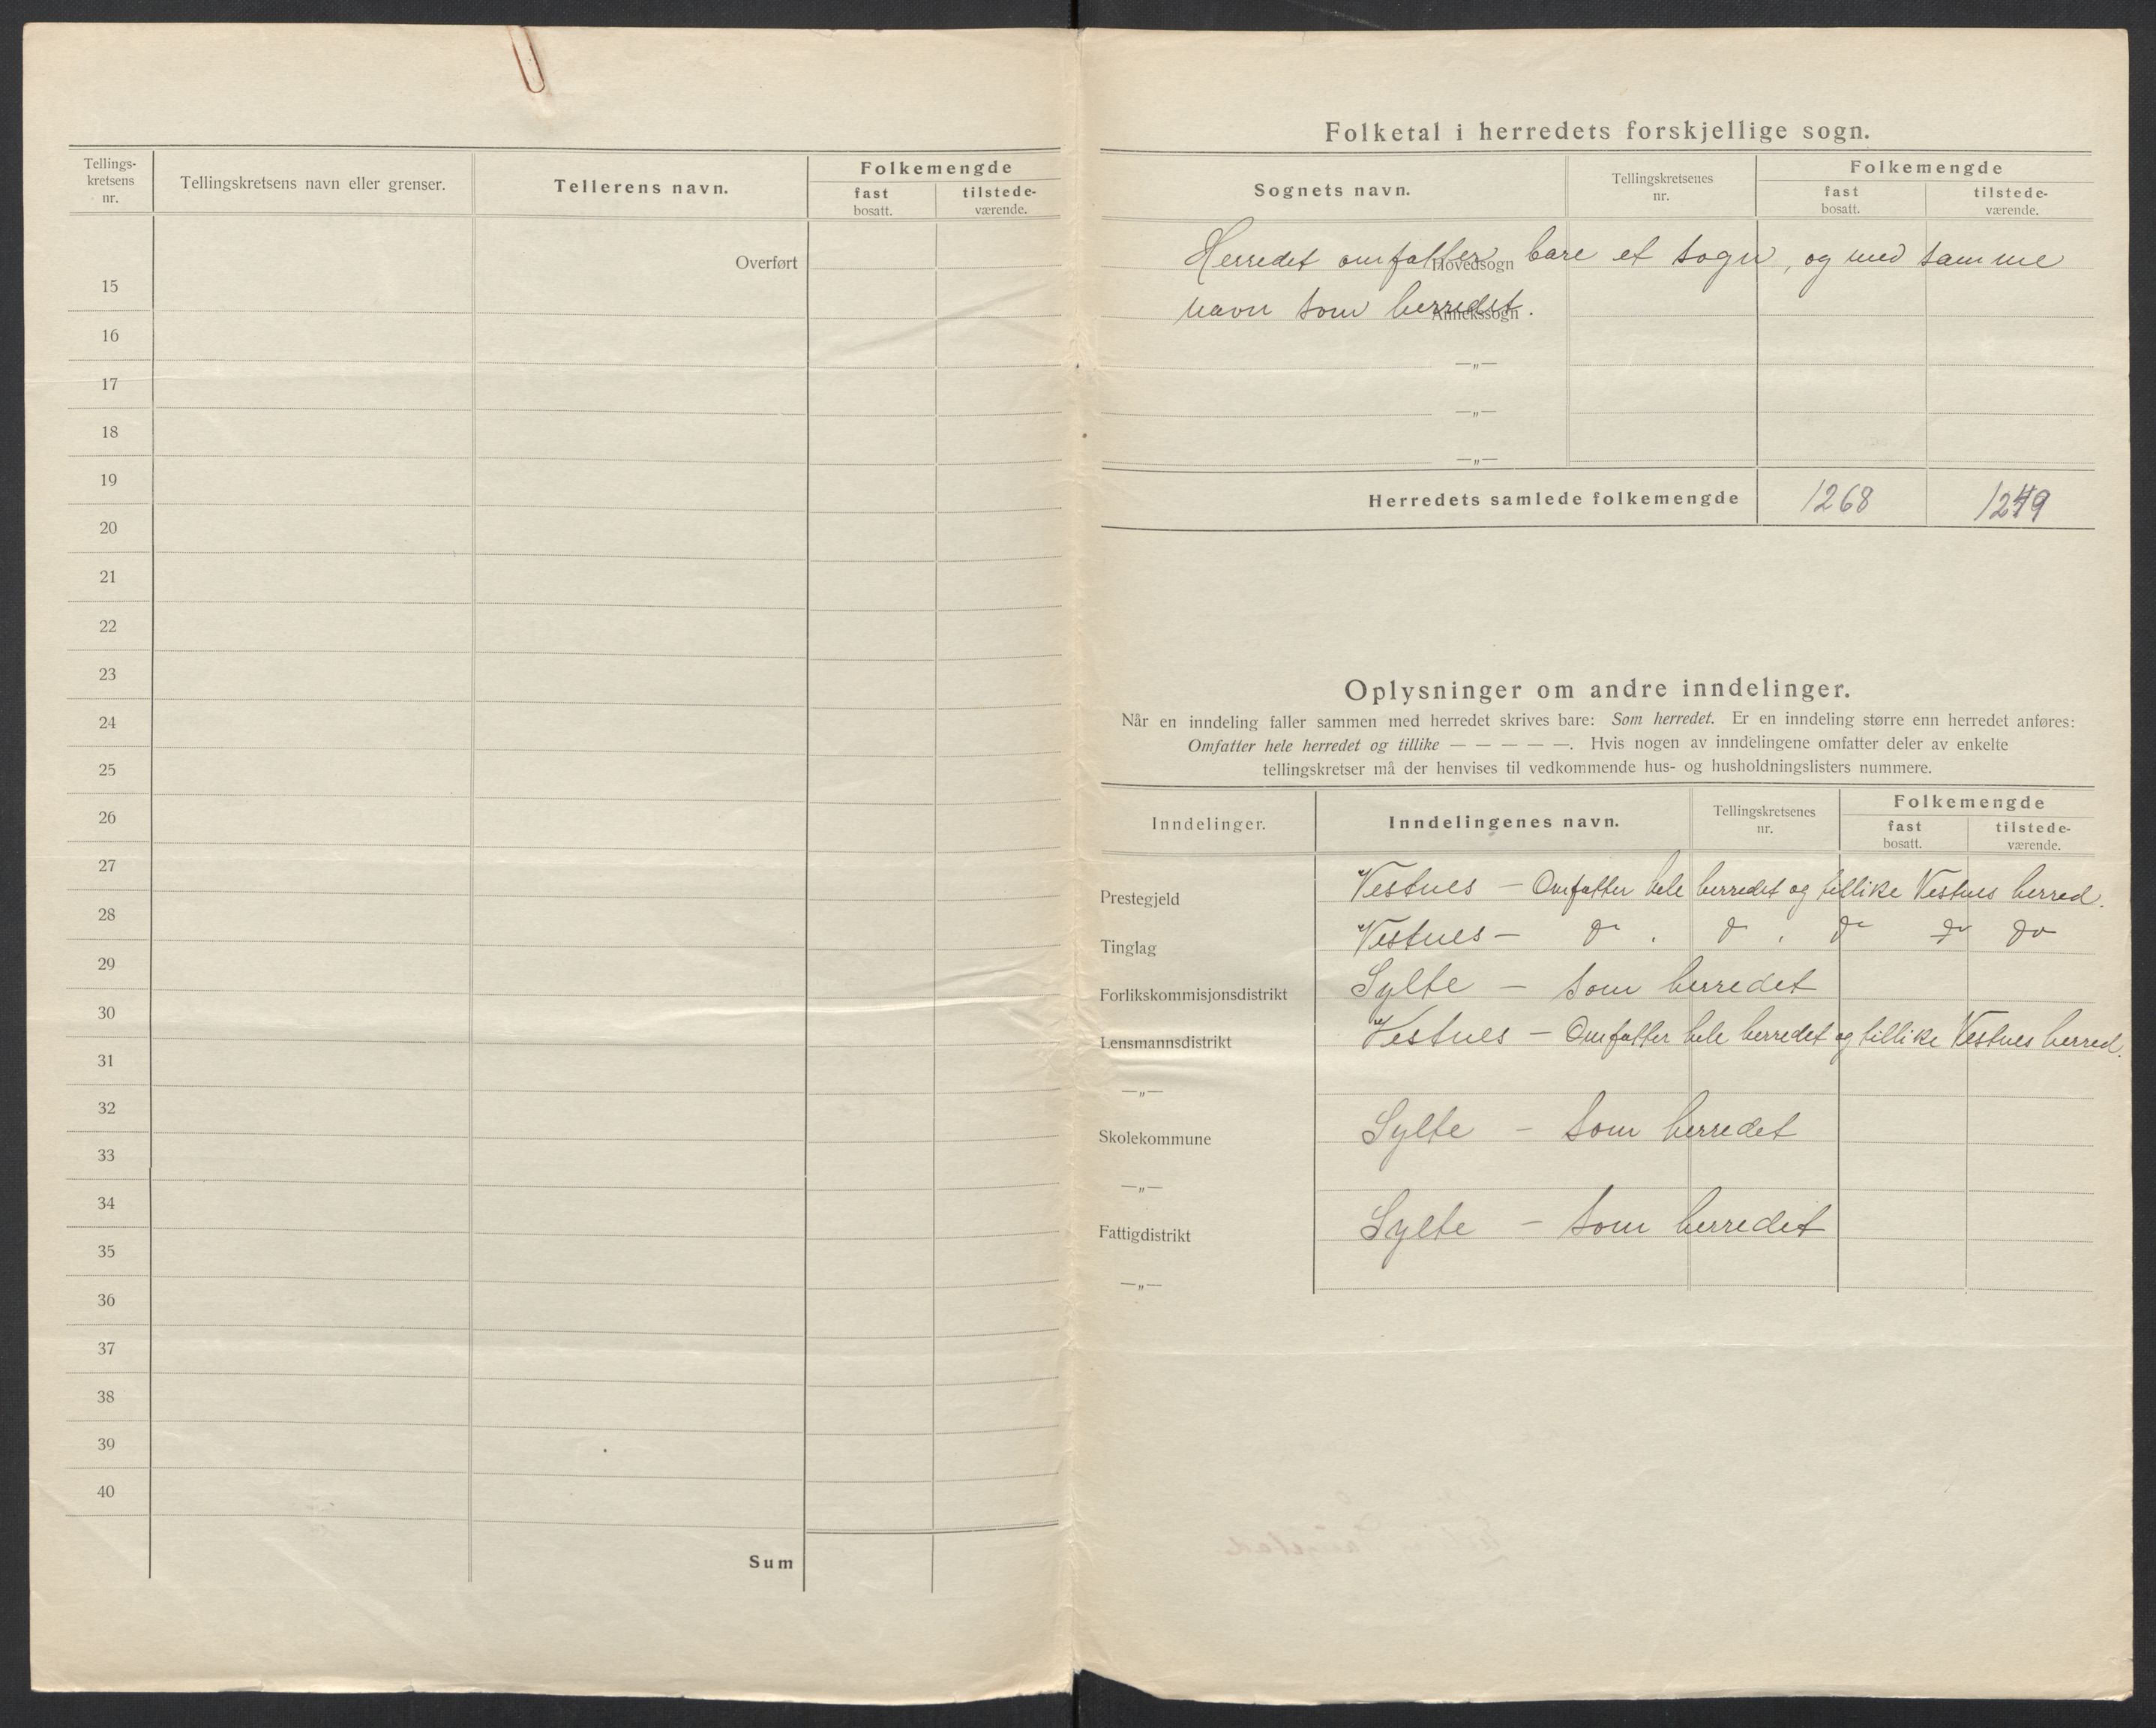 Tellings-
kretsens
nr.
Tellingskretsens navn eller grenser.
Tellerens navn.
Folkemengde
fast
bosatt.
tilstede-
værende.
Overført
15
16
17
18
19
20
21
22
23
24
25
26
27
28
29
30
31
32
33
34
35
36
37
38
39
40
Sum
Folketal i herredets forskjellige sogn.
Sognets navn.
Tellingskretsenes
nr.
Folkemengde
fast
bosatt.
tilstede-
værende.
Hovedsogn
Herredet omfatter bare et sogn, og med samme
Annekssogn
navn som herredet.
—„—
—„—
—„—
Herredets samlede folkemengde 1268
Oplysninger om andre inndelinger.
Når en inndeling faller sammen med herredet skrives bare: Som herredet. Er en inndeling større enn herredet anføres:
Omfatter hele herredet og tillike — — — — —. Hvis nogen av inndelingene omfatter deler av enkelte
tellingskretser må der henvises til vedkommende hus- og husholdningslisters nummere.
Inndelinger.
Inndelingenes navn.
Tellingskretsenes
nr.
Folkemengde
fast
bosatt.
tilstede-
værende.
Prestegjeld Vestnes — Omfatter hele herredet og tillike Vestnes herred.
Tinglag Vestnes — do do do do do
Forlikskommisjonsdistrikt Sylte — Som herredet
Lensmannsdistrikt Vestnes — Omfatter hele herredet og tillike Vestnes herred.
—„—
Skolekommune Sylte — Som herredet
—„—
Fattigdistrikt Sylte — Som herredet
—„—